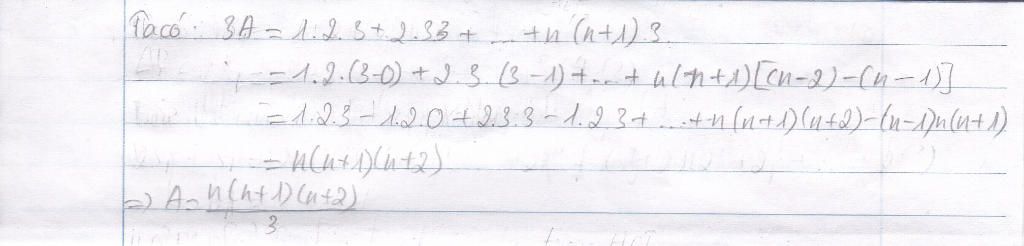 Ta có: 3A = 1.2.3 + 2.33 + ... + n(n+1).3
= 1.2.(3-0) + 2.3.(3-1) + ... + n(n+1)[(n-2)-(n-1)]
= 1.2.3 - 1.2.0 + 2.3.3 - 1.2.3 + ... + n(n+1)(n+2) - (n-1)n(n+1)
= n(n+1)(n+2)
=> A = n(n+1)(n+2)
3